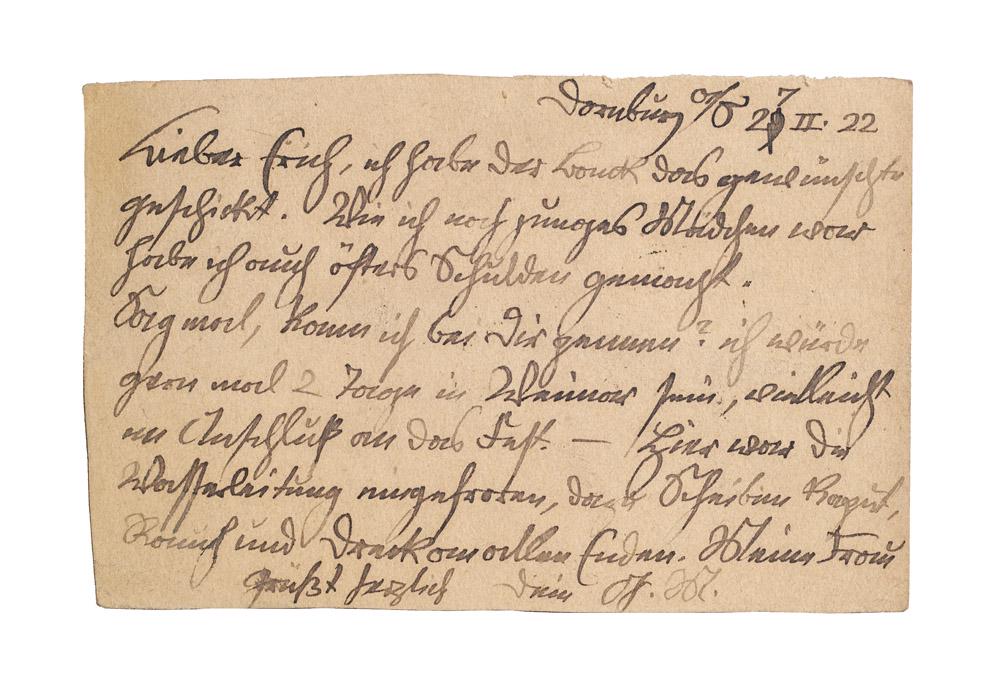 Dornburg a/S 27 II. 22
Lieber Erich, ich habe der Bank das gewünschte
geschickt. Wie ich noch junges Mädchen war
habe ich auch öfters Schulden gemacht.
Sag mal, kann ich bei Dir pennen? ich würde
gern mal 2 Tage in Weimar sein, vielleicht
im Anschluß an das Fest. — Hier war die
Wasserleitung eingefroren, dazu Scheiben kaput,
Rauch und Dreck an allen Enden. Meine Frau
grüßt herzlich Dein G. M.